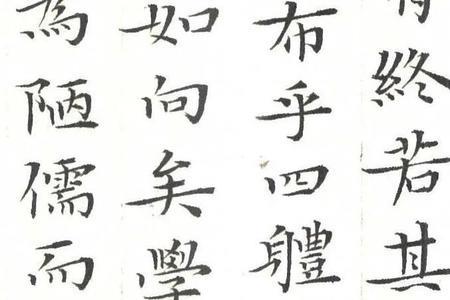 有終若其
布乎四軆
如向矣學
為陋儒而